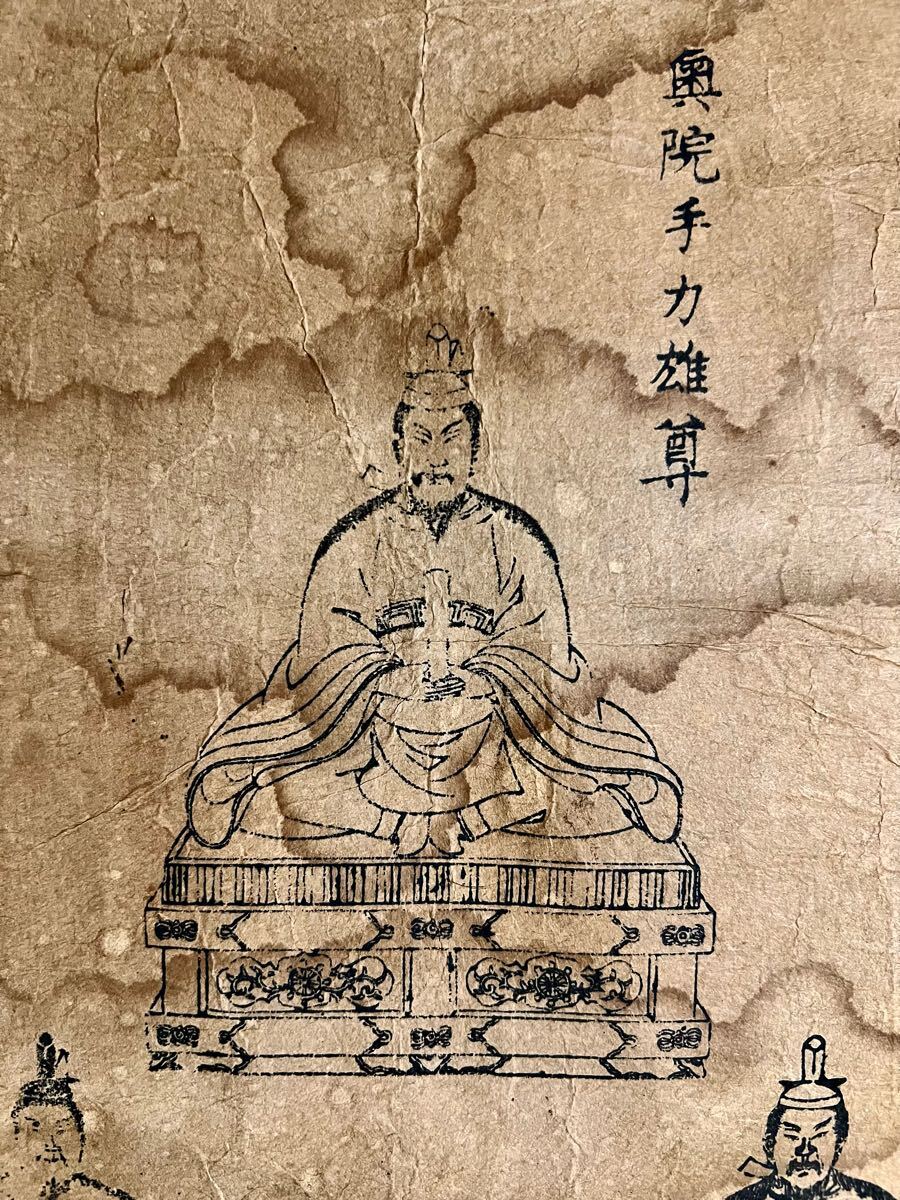 奥院手力雄尊